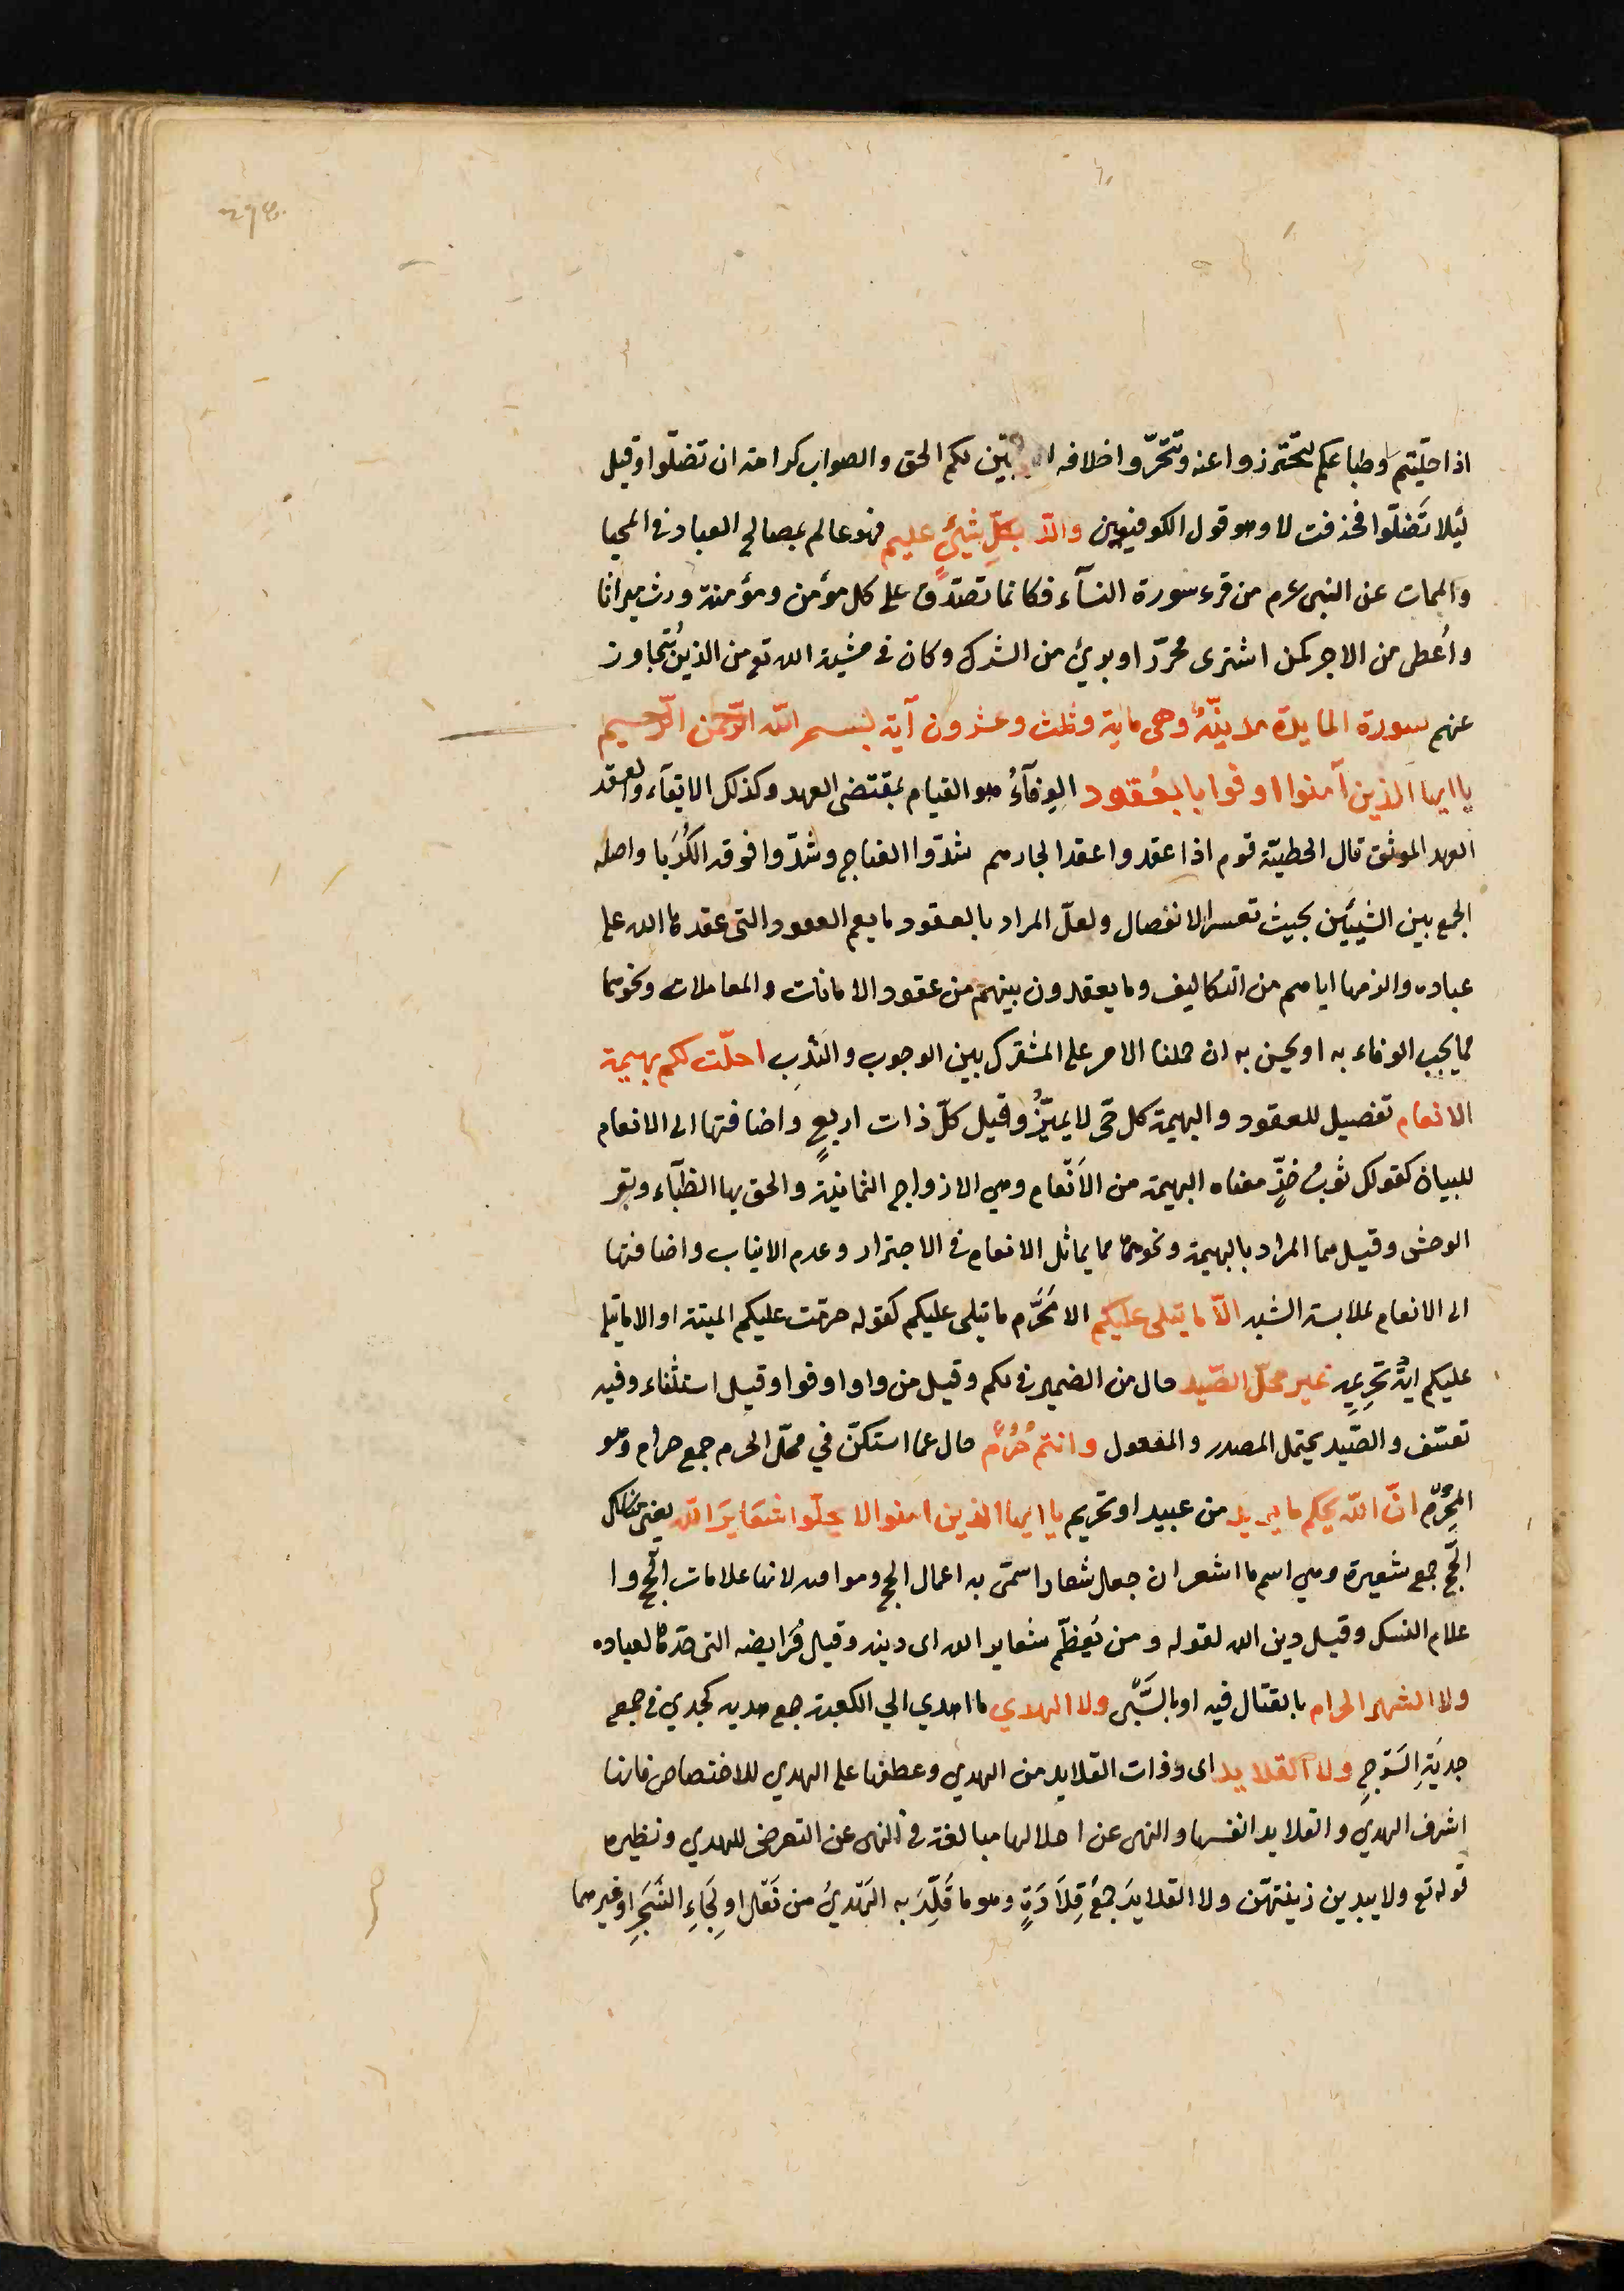 اذا خلّيتم وطباعكم لتحترزوا عنه وتتحرّوا خلافه او يبيّن لكم الحق والصواب كراهة ان تضلّوا وقيل
لئلا تَضلّوا فحذفت لا وهو قول الكوفيين والله بكلِّ شيءٍ عليم فهو عالم بمصالح العباد في المحيا
والممات عن النبى عرم من قرء سورة النسآء فكانما تصدّق على كل مؤمن ومؤمنة ورث ميراثا
وأُعطى من الاجر كمن اشترى محرّرا وبرئ من الشرك وكان في مشية الله تع من الذين يُتجاوز
عنهم سورة المايدة مدنيّة وهى ماية وثلث وعشرون آية بسم الله الرّحمن الرّحيم
يا ايها الذين آمنوا اوفوا بالعُقود الوفآءُ هو القيام بمقتضى العهد وكذلك الايفآء والعقد
العهد الموثق قال الحطيئة قوم اذا عقدوا عقدا لجارهم شدّوا العناج وشدّوا فوقه الكُرَبا واصله
الجمع بين الشيئين بحيث تعسر الانفصال ولعلّ المراد بالعقود ما يعم العقود التى عقدها الله على
عباده والزمها اياهم من التكاليف وما يعقدون بينهم من عقود الامانات والمعاملات ونحوهما
مما يجب الوفاء به او يحسن به ان حملنا الامر على المشترك بين الوجوب والنَدْبِ احلّت لكم بهيمة
الانعام تفصيل للعقود والبهيمة كل حىّ لا يميّزُ وقيل كلّ ذات اربعٍ واضافتها الى الانعام
للبيان كقولك ثوبُ خزٍّ معناه البهيمة من الاَنّعام وهي الازواج الثمانية والحق بها الظبآء وبقر
الوحش وقيل هما المراد بالبهيمة ونحوهما مما يماثل الانعام في الاجترار وعدم الانياب واضافتها
الى الانعام لملابسة الشبه الّا ما يتلى عليكم الا مُحَرَّم ما تيلى عليكم كقوله حرّمت عليكم الميتة او الا ما يتلى
عليكم ايةُ تحريمه غير محلّى الصّيد حال من الضمير في لكم وقيل من واو اوفوا وقيل استثناء وفيه
تعسّف والصّيد يحتمل المصدر والمفعول وانتم حُرُمٌ حال عما استكنّ في محلّى الحرم جمع حرام وهو
المحرّم انّ الله يحكم ما يريد من عبيد او تحريم يا ايها الذين امنوا لا يحلّوا شعَايرَ الله يعنى مناسك
الحَّج جمع شعيرة وهي اسم ما اشعر ان جعل شعارا سمّى به اعمال الحج ومواقفه لانها علامات الحَج وا
علام النسك وقيل دين الله لقوله ومن يُعظّم شعاير الله اى دينه وقيل فَرَايضه التى حدّها لعباده
ولا الشهر الحرام بالقتال فيه او بالسَّبْى ولا الهدي ما اهدي الي الكعبة جمع هديه كجدي في جمع
جديَةِ السَّرْجِ ولا القلايد اى ذوات القلايد من الهدي وعطفها على الهدي للاختصاص فانها
اشرف الهدي والقلايد انفسها والنهى عن احلالها مبالغة في النهى عن التعرض للهدي ونظيره
قوله تع ولا يبدين زينتهّن ولا القلايدَ جمعُ قِلاَدَةٍ وهو ما قُلِّدَ به الهَدْيُ من نَعْل او لِحَاءِ الشَجَرِ او غيرهما